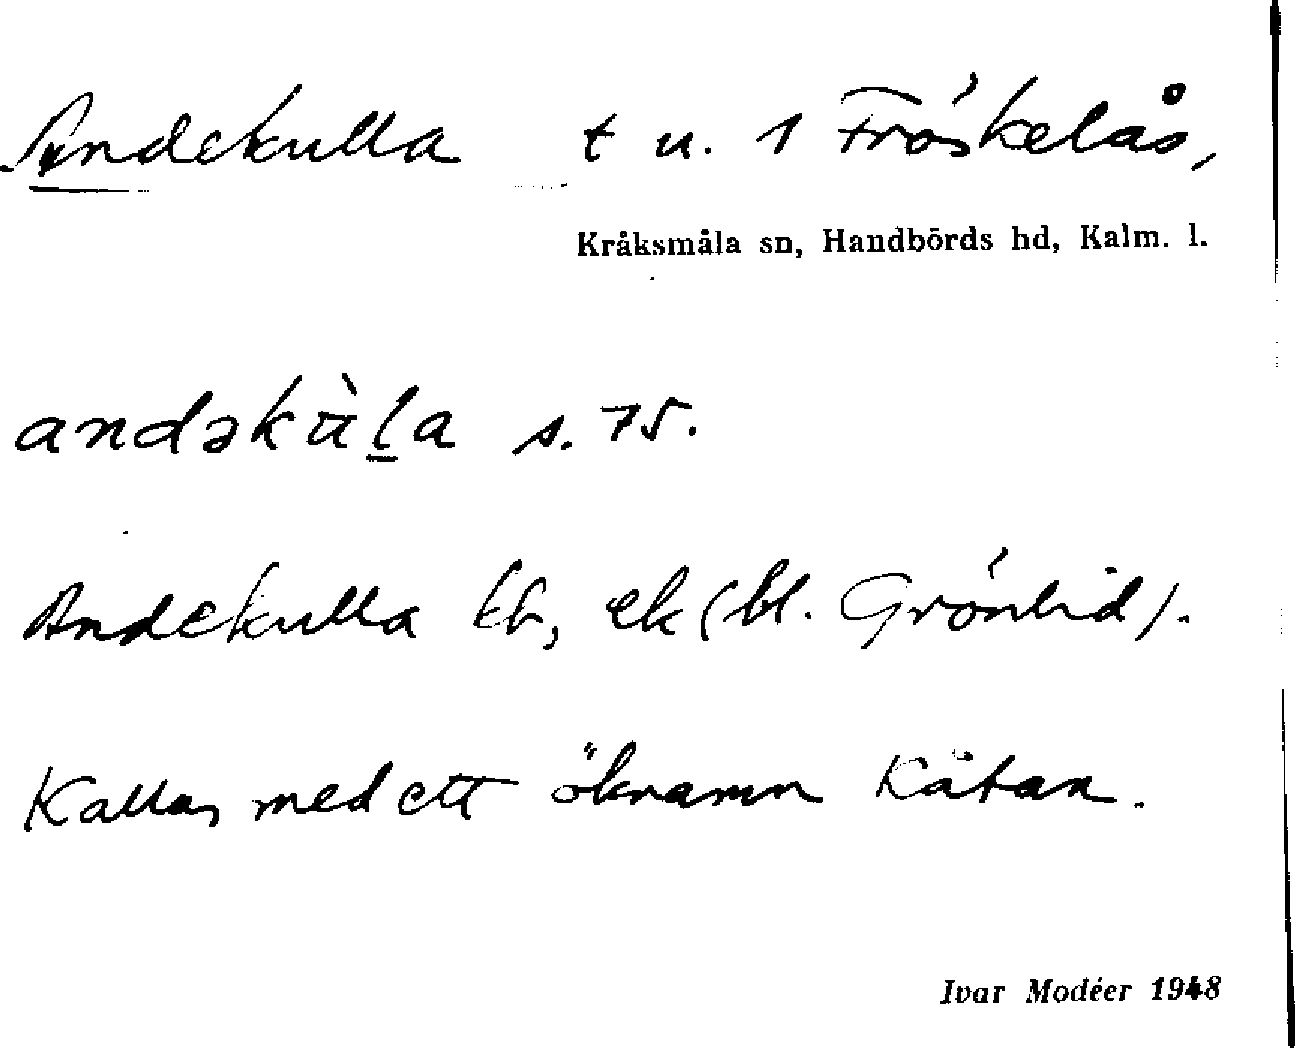 Andekulla t u. 1 Fröskelås,
Kråksmåla sn, Handbörds hd, Kalm. l.
andəkùl̲a s. 75.
Andekulla kb, ek (bl. Grönlid).
Kallas med ett öknamn Kätan.
Ivar Modéer 1948